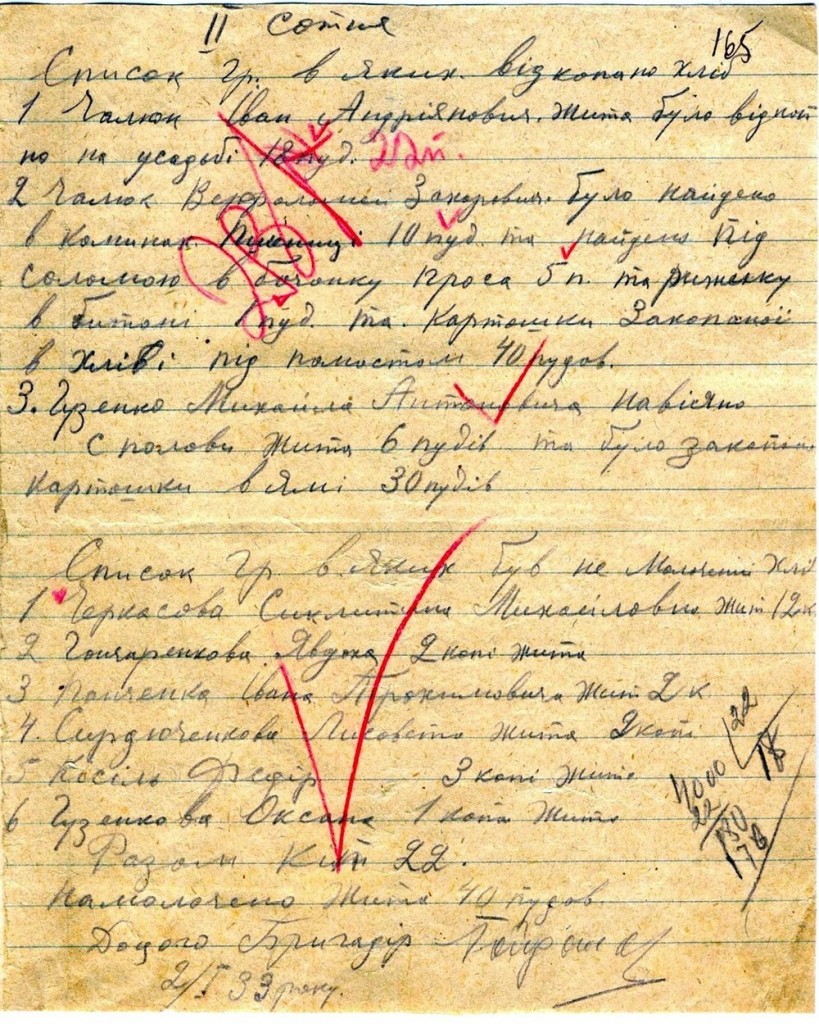 II сотня
165
Список гр. в яких. відкопано хліб
1 Чалюк Іван Андріянович. жита було відкопа
но на усадьбі 18 пуд. 22п.
2 Чалюк Верфоломей Захарович. було найдено
в комінах Пшениці 10 пуд. та найдено під
соломою в бочонку проса 5 п. та рижику
в битоні 1 пуд. та. Картошки Закопаної
в хліві під помостом 40 пудов.
3. Гузенко Михаіла Антоновича навіяно
с полови жита 6 пудів та було закопан
картошки в ямі 30 пудів
Список гр в яких був не молочений хліб
1 Черкасова Михайловна жит 12 к
2 Гончаренкова Явдоха 2 копі жита
3 Панченка Івана Трохимовича жит 2 к
4. Сердюченкова Лисовета жита 2 копі
5 Косіль Федір 3 копі жита
6 Гузенкова Оксана 1 копа жита
Разом кіп 22.
Намолочено жита 40 пудов.
До цього Бригадір
2/I 33 року.
4000 22
22 18
180
178